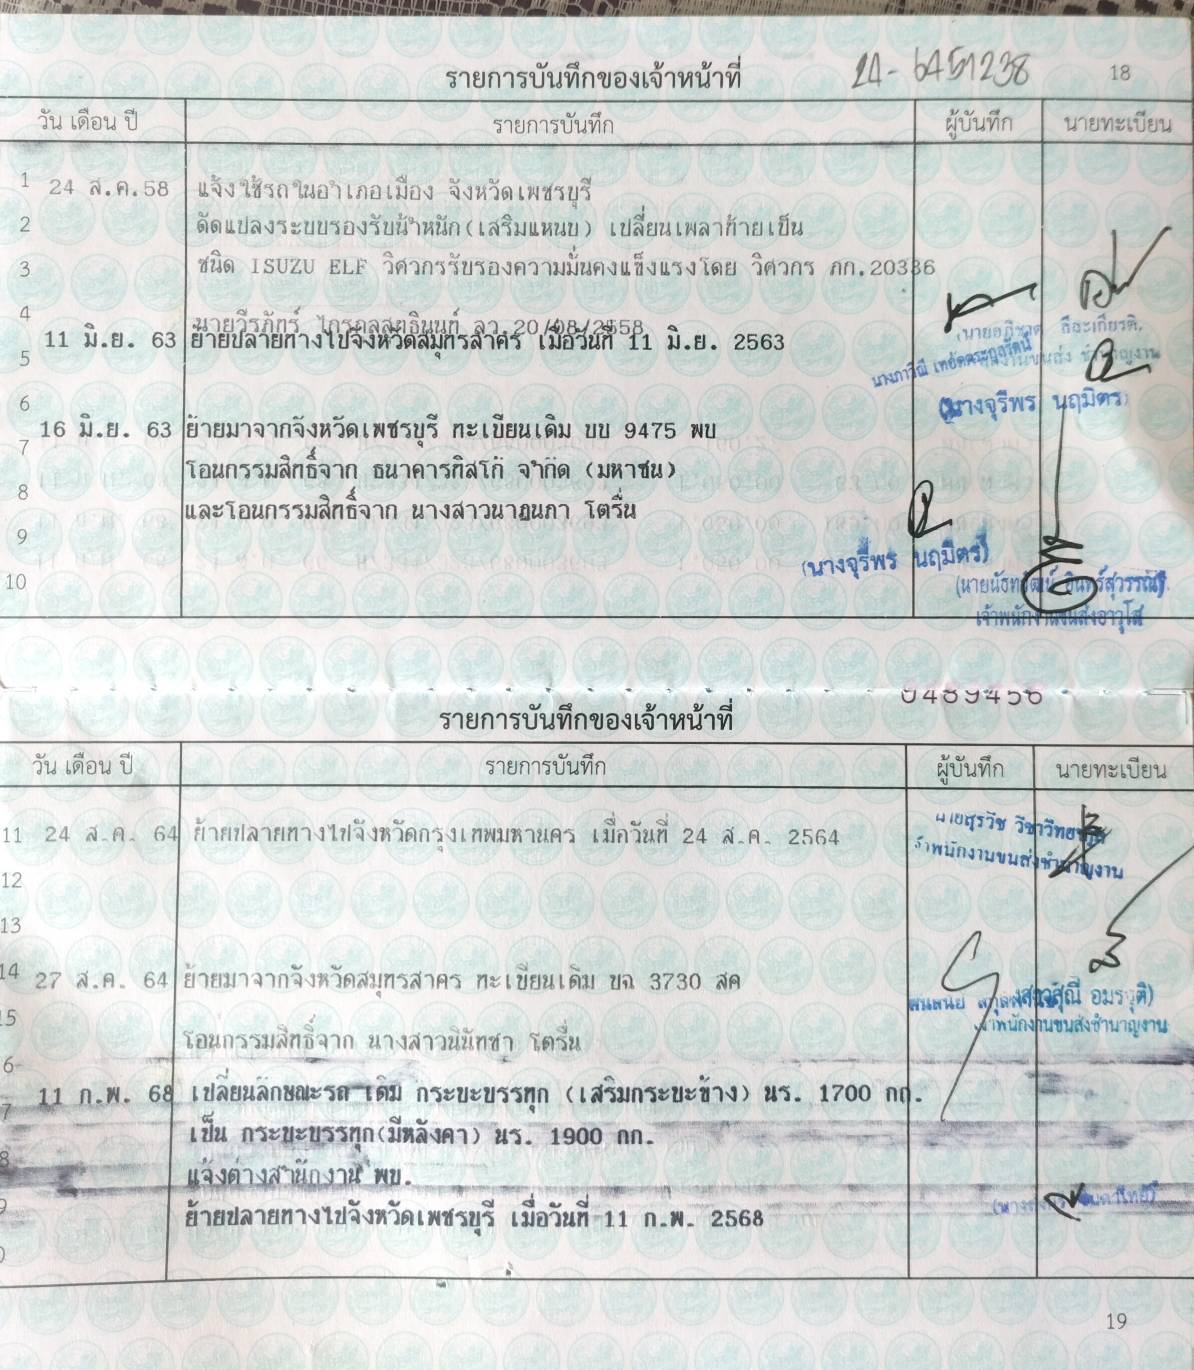 รายการบันทึกของเจ้าหน้าที่ 1A-6A51238 18
วัน เดือน ปี รายการบันทึก ผู้บันทึก นายทะเบียน
1 24 ส.ค.58 แจ้งใช้รถในอำเภอเมือง จังหวัดเพชรบุรี
2 ดัดแปลงระบบรองรับน้ำหนัก(เสริมแหนบ) เปลี่ยนเพลาท้ายเป็น
3 ชนิด ISUZU ELF วิศวกรรับรองความมั่นคงแข็งแรงโดย วิศวกร ภก.20336
4 นายวีรภัทร์ ลว.20/08/2558
11 มิ.ย. 63 ย้ายปลายทางไปจังหวัดสมุทรสาคร เมื่อวันที่ 11 มิ.ย. 2563
5
6 (นางจุรีพร นฤมิตร)
7 16 มิ.ย. 63 ย้ายมาจากจังหวัดเพชรบุรี ทะเบียนเดิม บบ 9475 พบ
8 โอนกรรมสิทธิ์จาก ธนาคารทิสโก้ จำกัด (มหาชน)
9 และโอนกรรมสิทธิ์จาก นางสาวนาฏนภา โตรื่น
(นางจุรีพร นฤมิตร)
10 (นายนัธทวัฒน์ อินทร์สุวรรณ์)
เจ้าพนักงานขนส่งอาวุโส
0489456
รายการบันทึกของเจ้าหน้าที่
วัน เดือน ปี รายการบันทึก ผู้บันทึก นายทะเบียน
11 24 ส.ค. 64 ย้ายปลายทางไปจังหวัดกรุงเทพมหานคร เมื่อวันที่ 24 ส.ค. 2564
นายสุรวิช
เจ้าพนักงานขนส่งชำนาญงาน
12
13
14 27 ส.ค. 64 ย้ายมาจากจังหวัดสมุทรสาคร ทะเบียนเดิม ขฉ 3730 สค
15 อมรวุติ)
เจ้าพนักงานขนส่งชำนาญงาน
โอนกรรมสิทธิ์จาก นางสาวนินัทชา โตรื่น
6
7 11 ก.พ. 68 เปลี่ยนลักษณะรถ เดิม กระบะบรรทุก (เสริมกระบะข้าง) นร. 1700 กก.
เป็น กระบะบรรทุก(มีหลังคา) นร. 1900 กก.
8 แจ้งต่างสำนักงาน พบ.
9 ย้ายปลายทางไปจังหวัดเพชรบุรี เมื่อวันที่ 11 ก.พ. 2568
19